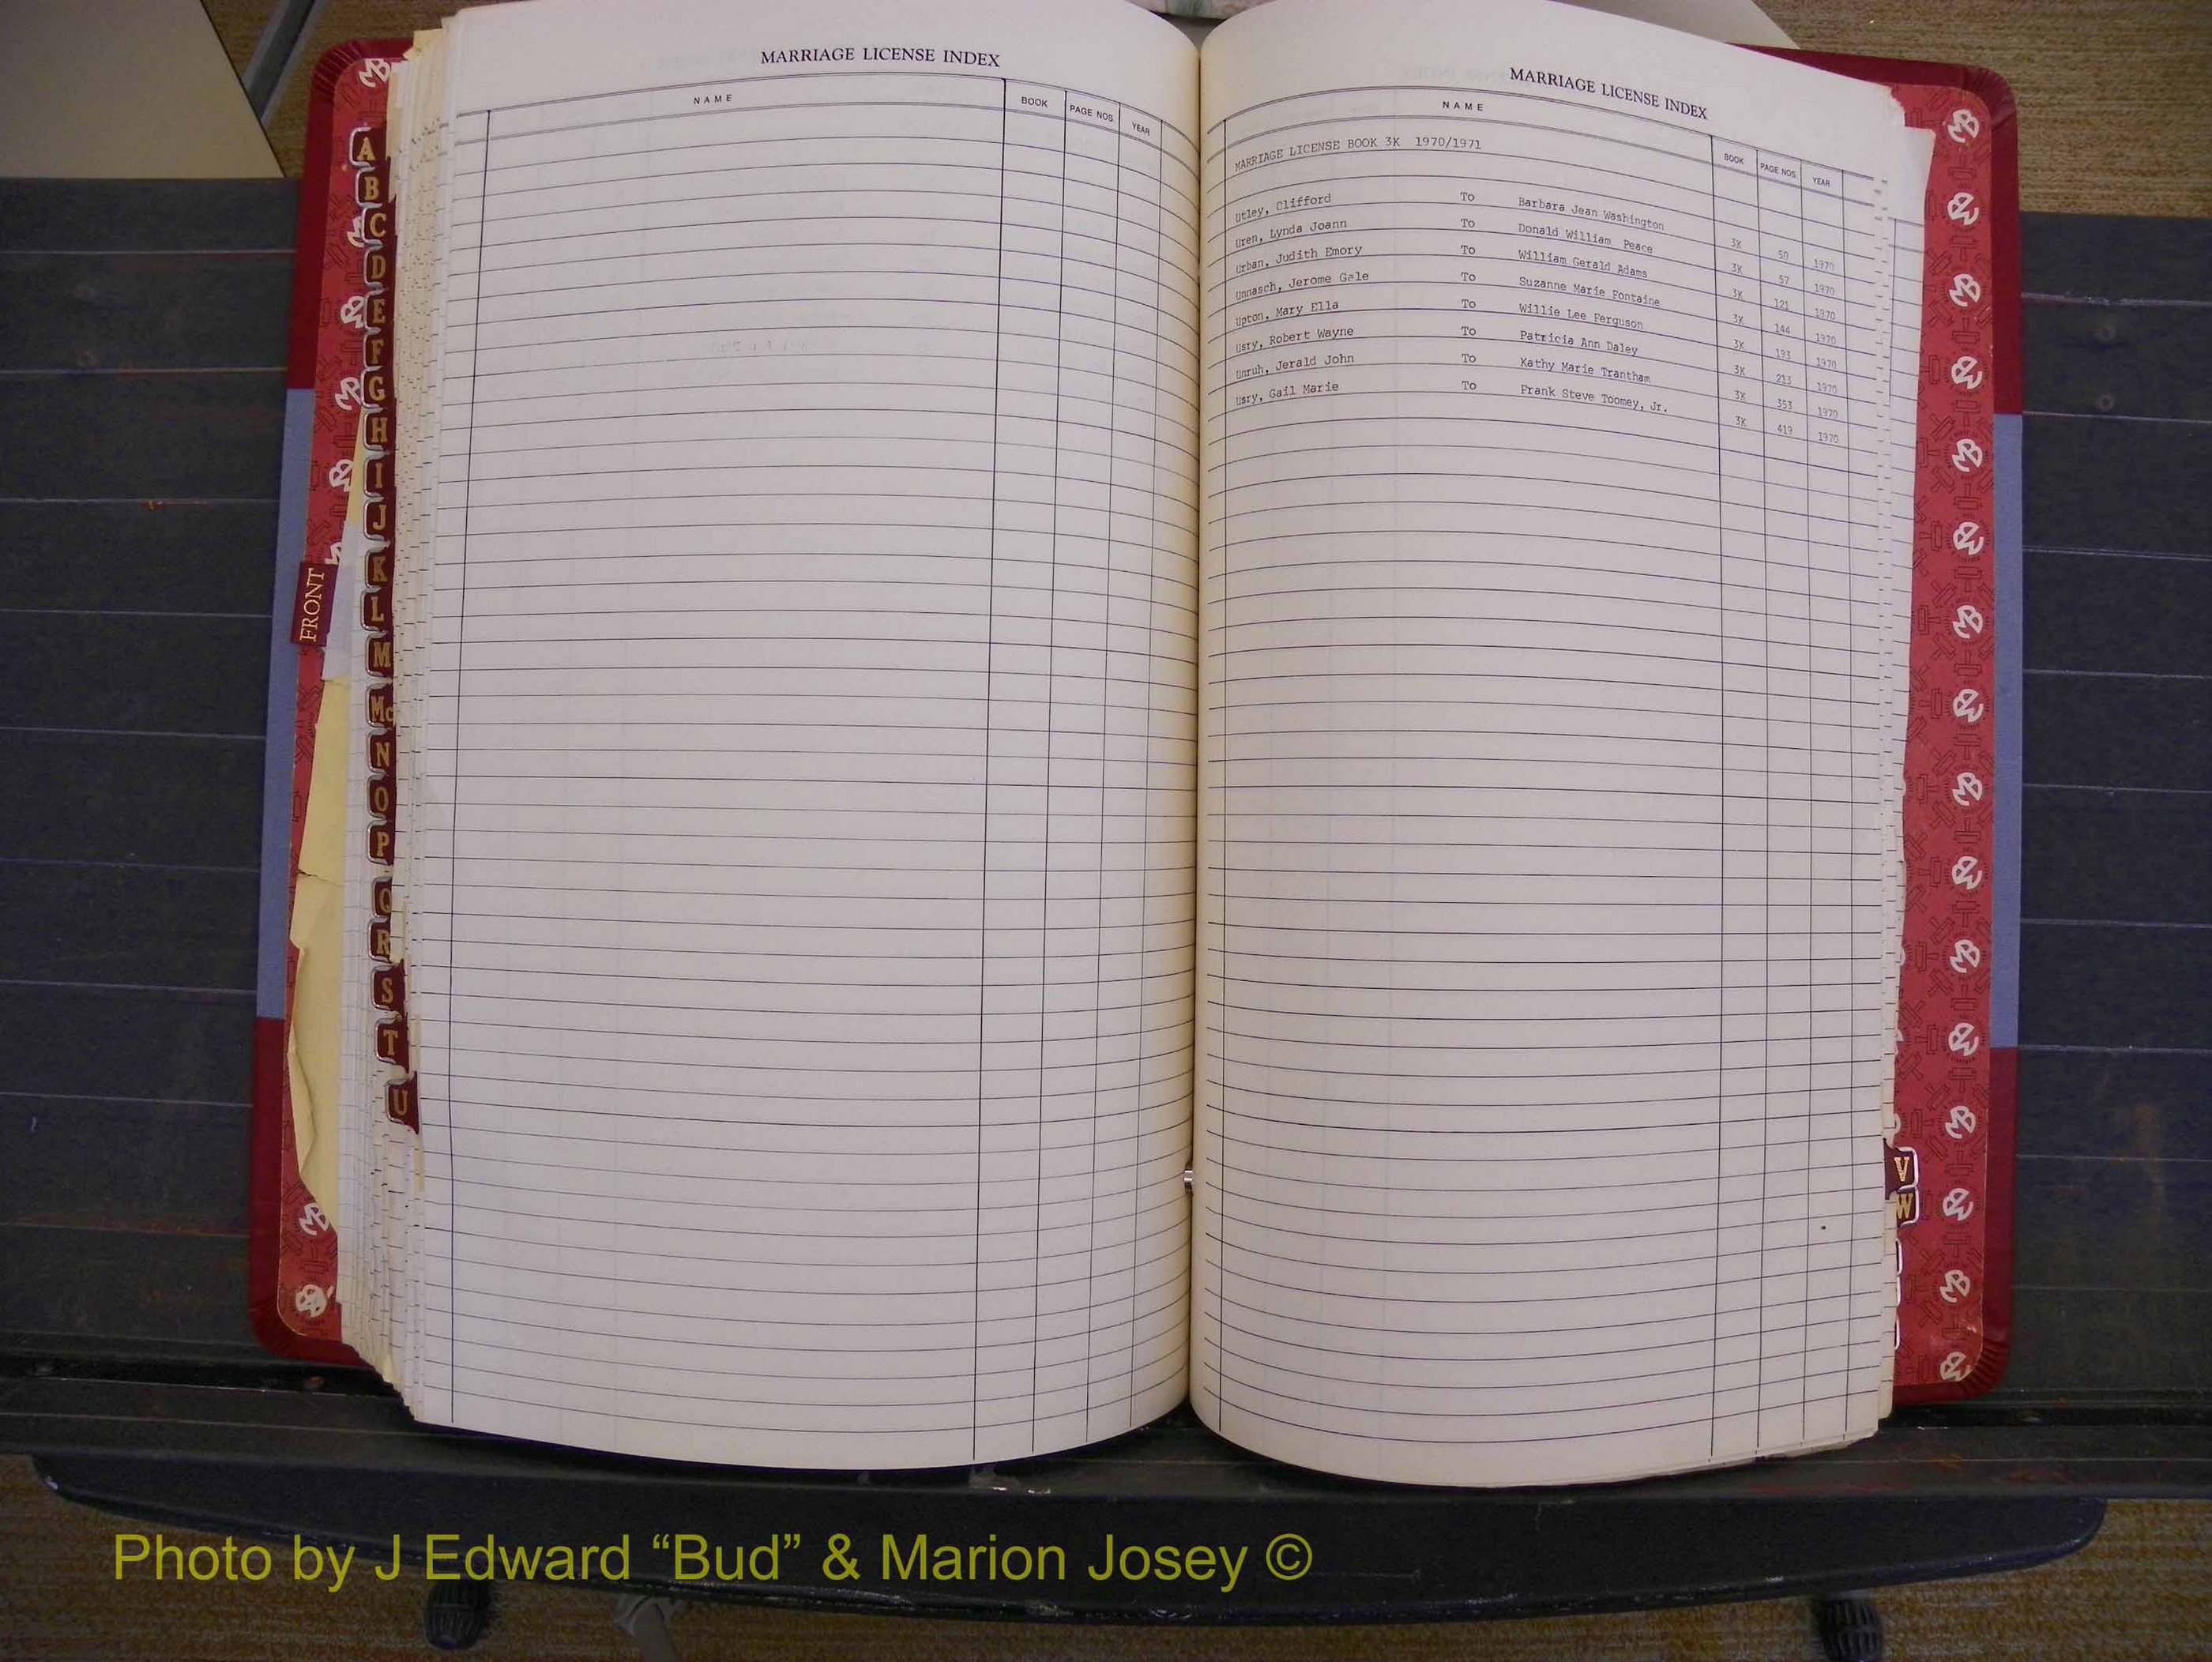 MARRIAGE LICENSE INDEX
NAME BOOK PAGE NOS. YEAR
MARRIAGE LICENSE INDEX
NAME BOOK PAGE NOS. YEAR
MARRIAGE LICENSE BOOK 3K 1970/1971
Utley, Clifford To Barbara Jean Washington 3K 50 1970
Uren, Lynda Joann To Donald William Peace 3K 57 1970
Urban, Judith Emory To William Gerald Adams 3K 121 1970
Unnasch, Jerome Gale To Suzanne Marie Fontaine 3K 144 1970
Upton, Mary Ella To Willie Lee Ferguson 3K 193 1970
Usry, Robert Wayne To Patricia Ann Daley 3K 213 1970
Unruh, Jerald John To Kathy Marie Trantham 3K 353 1970
Usry, Gail Marie To Frank Steve Toomey, Jr. 3K 419 1970
A
B
C
D
E
F
G
H
I
J
K
L
M
Mc
N
O
P
Q
R
S
T
U
FRONT
V
W
Photo by J Edward “Bud” & Marion Josey ©